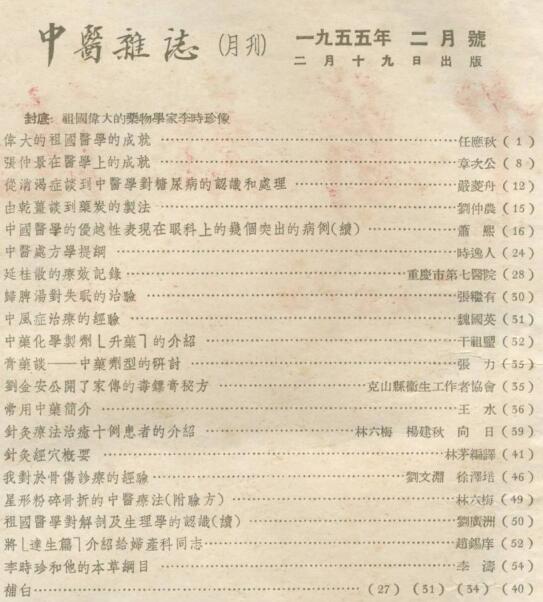 中醫雜誌（月刊） 一九五五年 二月號
二月十九日出版
封底：祖國偉大的藥物學家李時珍像
偉大的祖國醫學的成就……任應秋（1）
張仲景在醫學上的成就……章次公（8）
從消渴症談到中醫學對糖尿病的認識和處理……嚴菱舟（12）
由乾薑談到藥炭的製法……劉仲農（15）
中國醫學的優越性表現在眼科上的幾個突出的病例（續）……蕭熙（16）
中醫處方學提綱……時逸人（24）
延桂散的療效記錄……重慶市第七醫院（28）
歸脾湯對失眠的治驗……張繼有（30）
中風症治療的經驗……魏國英（31）
中藥化學製劑〔升藥〕的介紹……干祖望（32）
膏藥談——中藥劑型的硏討……張力（33）
劉金安公開了家傳的毒鏢膏秘方……克山縣衞生工作者協會（35）
常用中藥簡介……王水（36）
針灸療法治癒十例患者的介紹……林六梅 楊建秋 向日（39）
針灸經穴概要……林茅編譯（41）
我對於骨傷診療的經驗……劉文淵 徐澤培（46）
星形粉碎骨折的中醫療法（附驗方）……林六梅（49）
祖國醫學對解剖及生理學的認識（續）……劉廣洲（50）
將〔達生篇〕介紹給婦產科同志……趙錫庠（52）
李時珍和他的本草綱目……李濤（54）
補白……（27）（31）（34）（40）